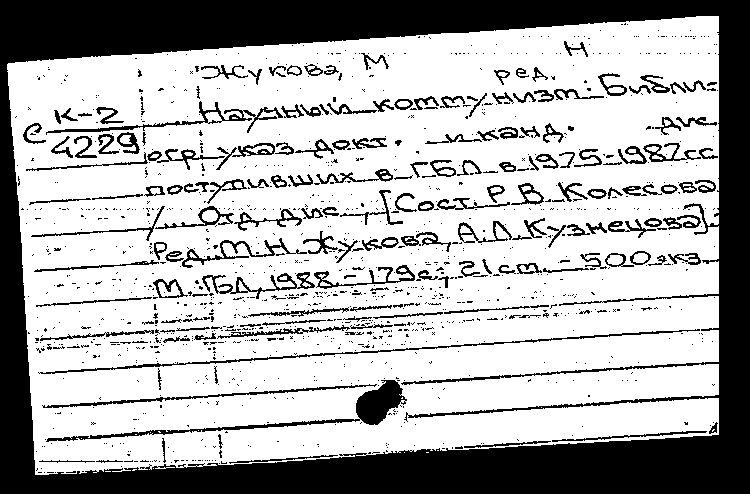 Жукова, М Н
ред.
Научный коммунизм: Библи-
С К-2
4229
огр указ докт. и канд. дис
поступивших в ГБЛ в 1975-1987гг
/... Отд. дис.; [Сост. Р. В. Колесова
Ред.: М. Н. Жукова, А. Л. Кузнецова].-
М.: ГБЛ, 1988.-179с.; 21 cm. - 500 экз.